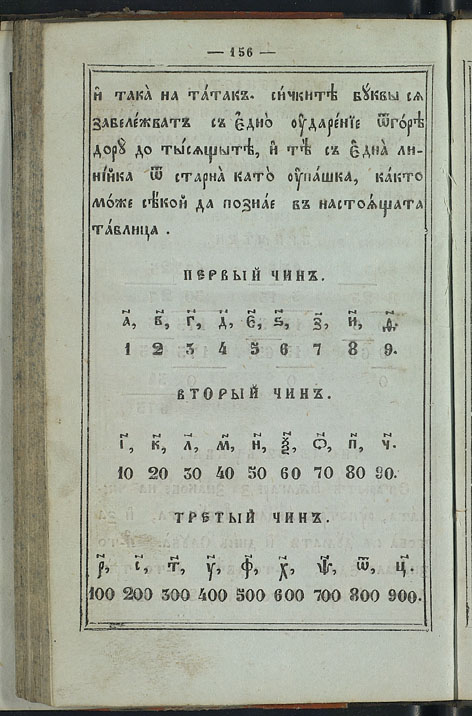 — 156 —
и҆ така̀ на та́такъ. си́чкитѣ бꙋ́квы сѧ
забеле́жватъ съ є҆дно̀ ᲂу҆даре́нїе ѿго́рѣ
дорꙋ̀ до ты́сѧщытѣ, и҆ тѣ̀ съ є҆дна̀ ли-
ні́йка ѿ страна̀ като̀ ᲂу҆па́шка, ка́кто
мо́же сѣ́кой да позна́е въ настоѧ́щата
та́блица.
ПЕРВЫЙ ЧИНЪ.
а҃, в҃, г҃, д҃, є҃, ѕ҃, з҃, и҃, ѳ҃.
1 2 3 4 5 6 7 8 9.
ВТОРЫЙ ЧИНЪ.
і҃, к҃, л҃, м҃, н҃, ѯ҃, ѻ҃, п҃, ч҃.
10 20 30 40 50 60 70 80 90.
ТРЕТЫЙ ЧИНЪ.
р҃, с҃, т҃, у҃, ф҃, х҃, ѱ҃, ѿ҃, ц҃.
100 200 300 400 500 600 700 800 900.